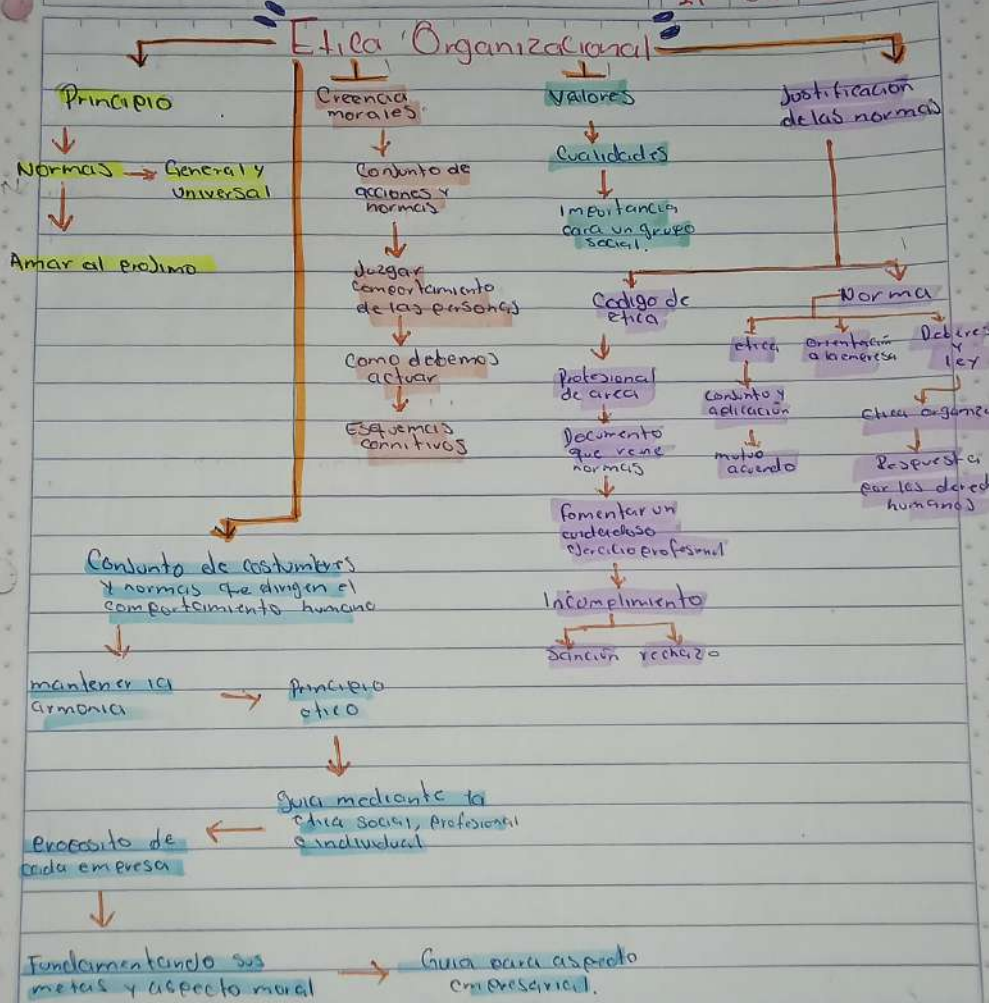 Etica Organizacional
Principio
Normas → General y
universal
Amar al projimo
Creencia
morales.
Conjunto de
acciones y
normas
Juzgar
comportamiento
de las personas
Como debemos
actuar
Esquemas
connitivos
Valores
Cualidades
Importancia
para un grupo
social.
Justificación
de las normas
Codigo de
etica
Profesional
de area
Documento
que reune
normas
Fomentar un
cuidadoso
ejercicio profesional
Incumplimiento
Sanción rechazo
Norma
etica
Conjunto y
aplicación
mutuo
acuerdo
orientación
a la empresa
Deberes
y
ley
Etica organiza
Respuesta
por los derec
humanos
Conjunto de costumbres
y normas que dirigen el
comportamiento humano
mantener la
armonia
Principio
etico
guia mediante la
etica social, profesional
e individual
proposito de
cada empresa
Fundamentando sus
metas y aspecto moral
Guia para aspecto
empresarial.